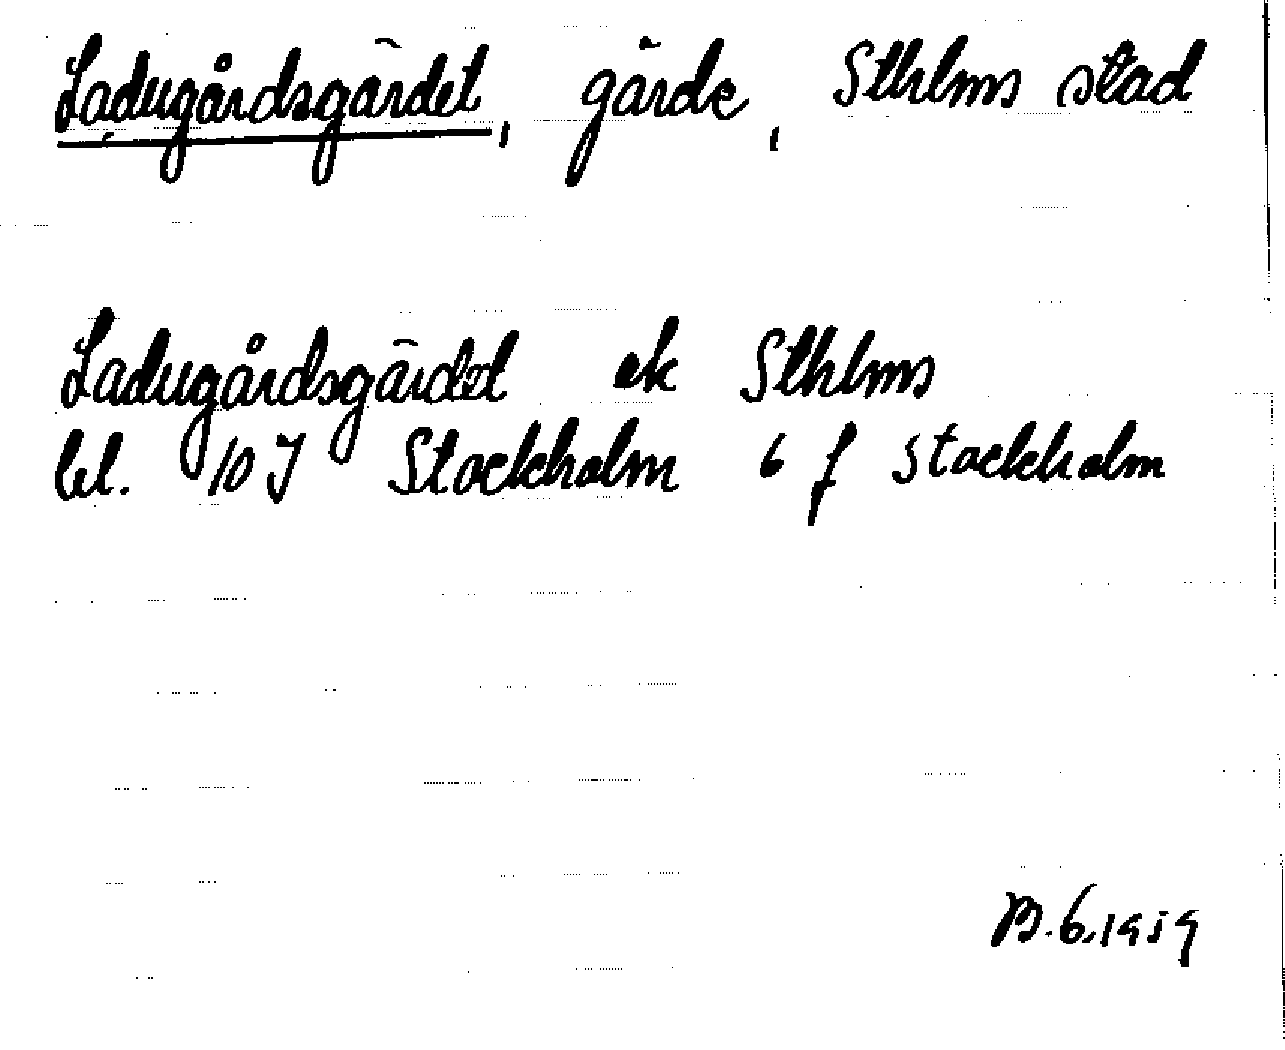 Ladugårdsgärdet, gärde, Sthlms stad
Ladugårdsgärdet ek Sthlms
bl. 10 I Stockholm 6 f Stockholm
B.6.1959